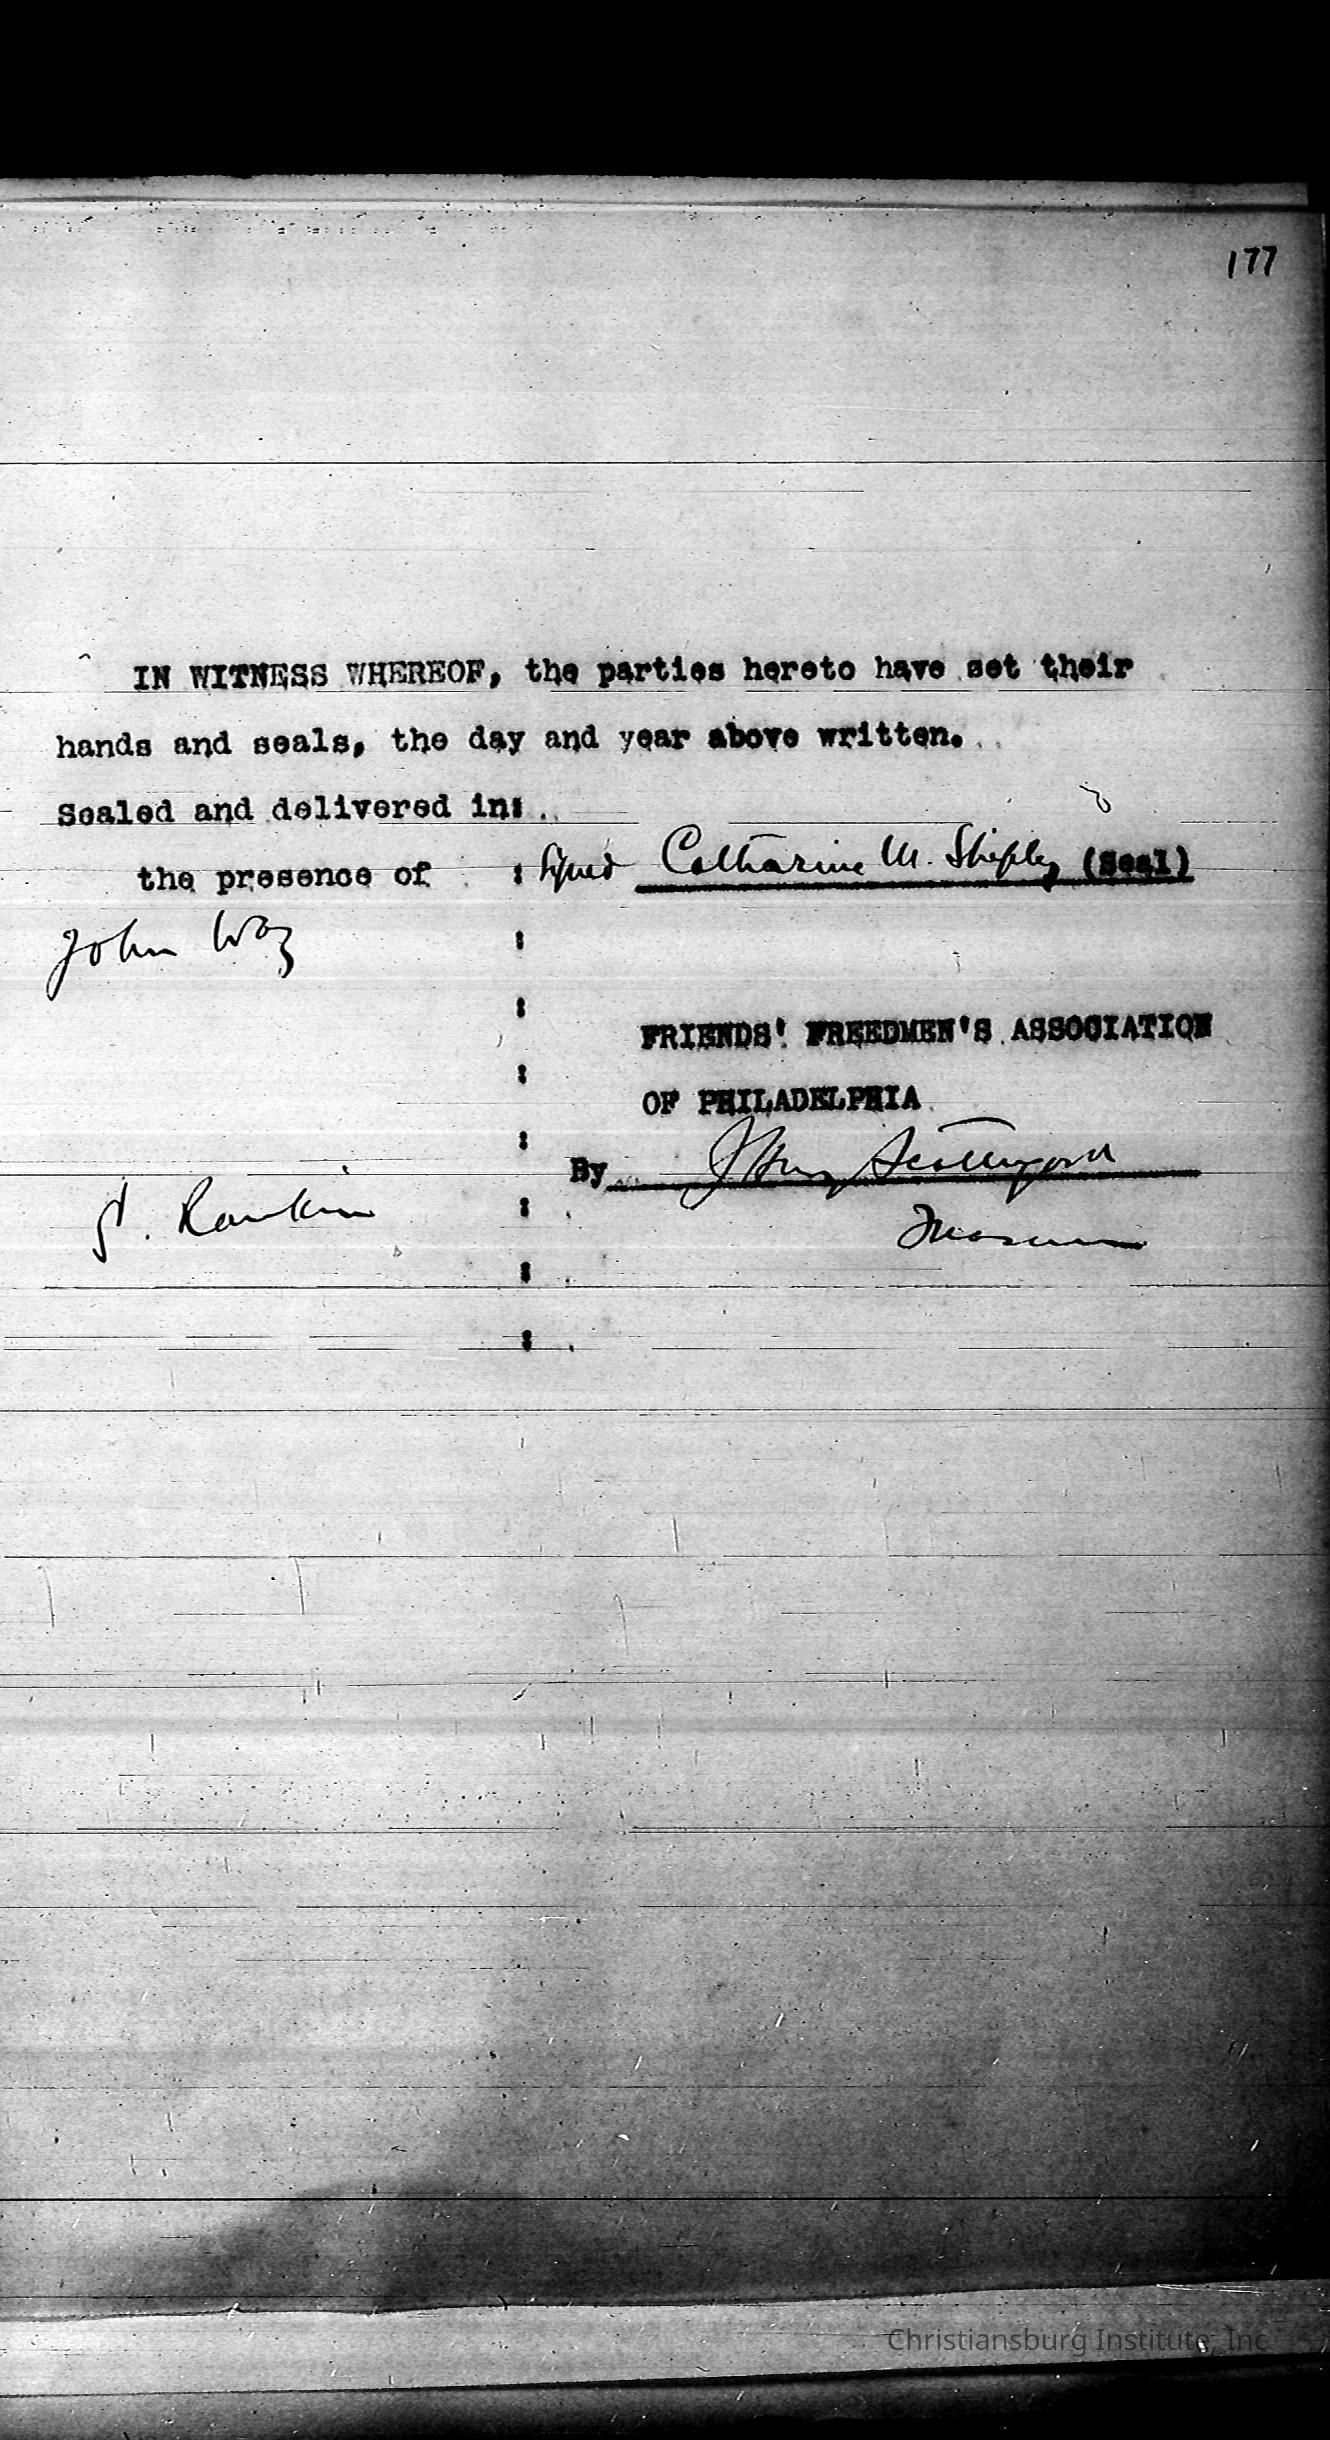 177
IN WITNESS WHEREOF, the parties hereto have set their
hands and seals, the day and year above written.
Sealed and delivered in:
the presence of : Signed Catharine M. Shipley (Seal)
John Way :
:
FRIENDS' FREEDMEN'S ASSOCIATION
:
OF PHILADELPHIA
:
By J Henry Scattergood
J. Rankin :
Treasurer
:
:
Christiansburg Institute, Inc